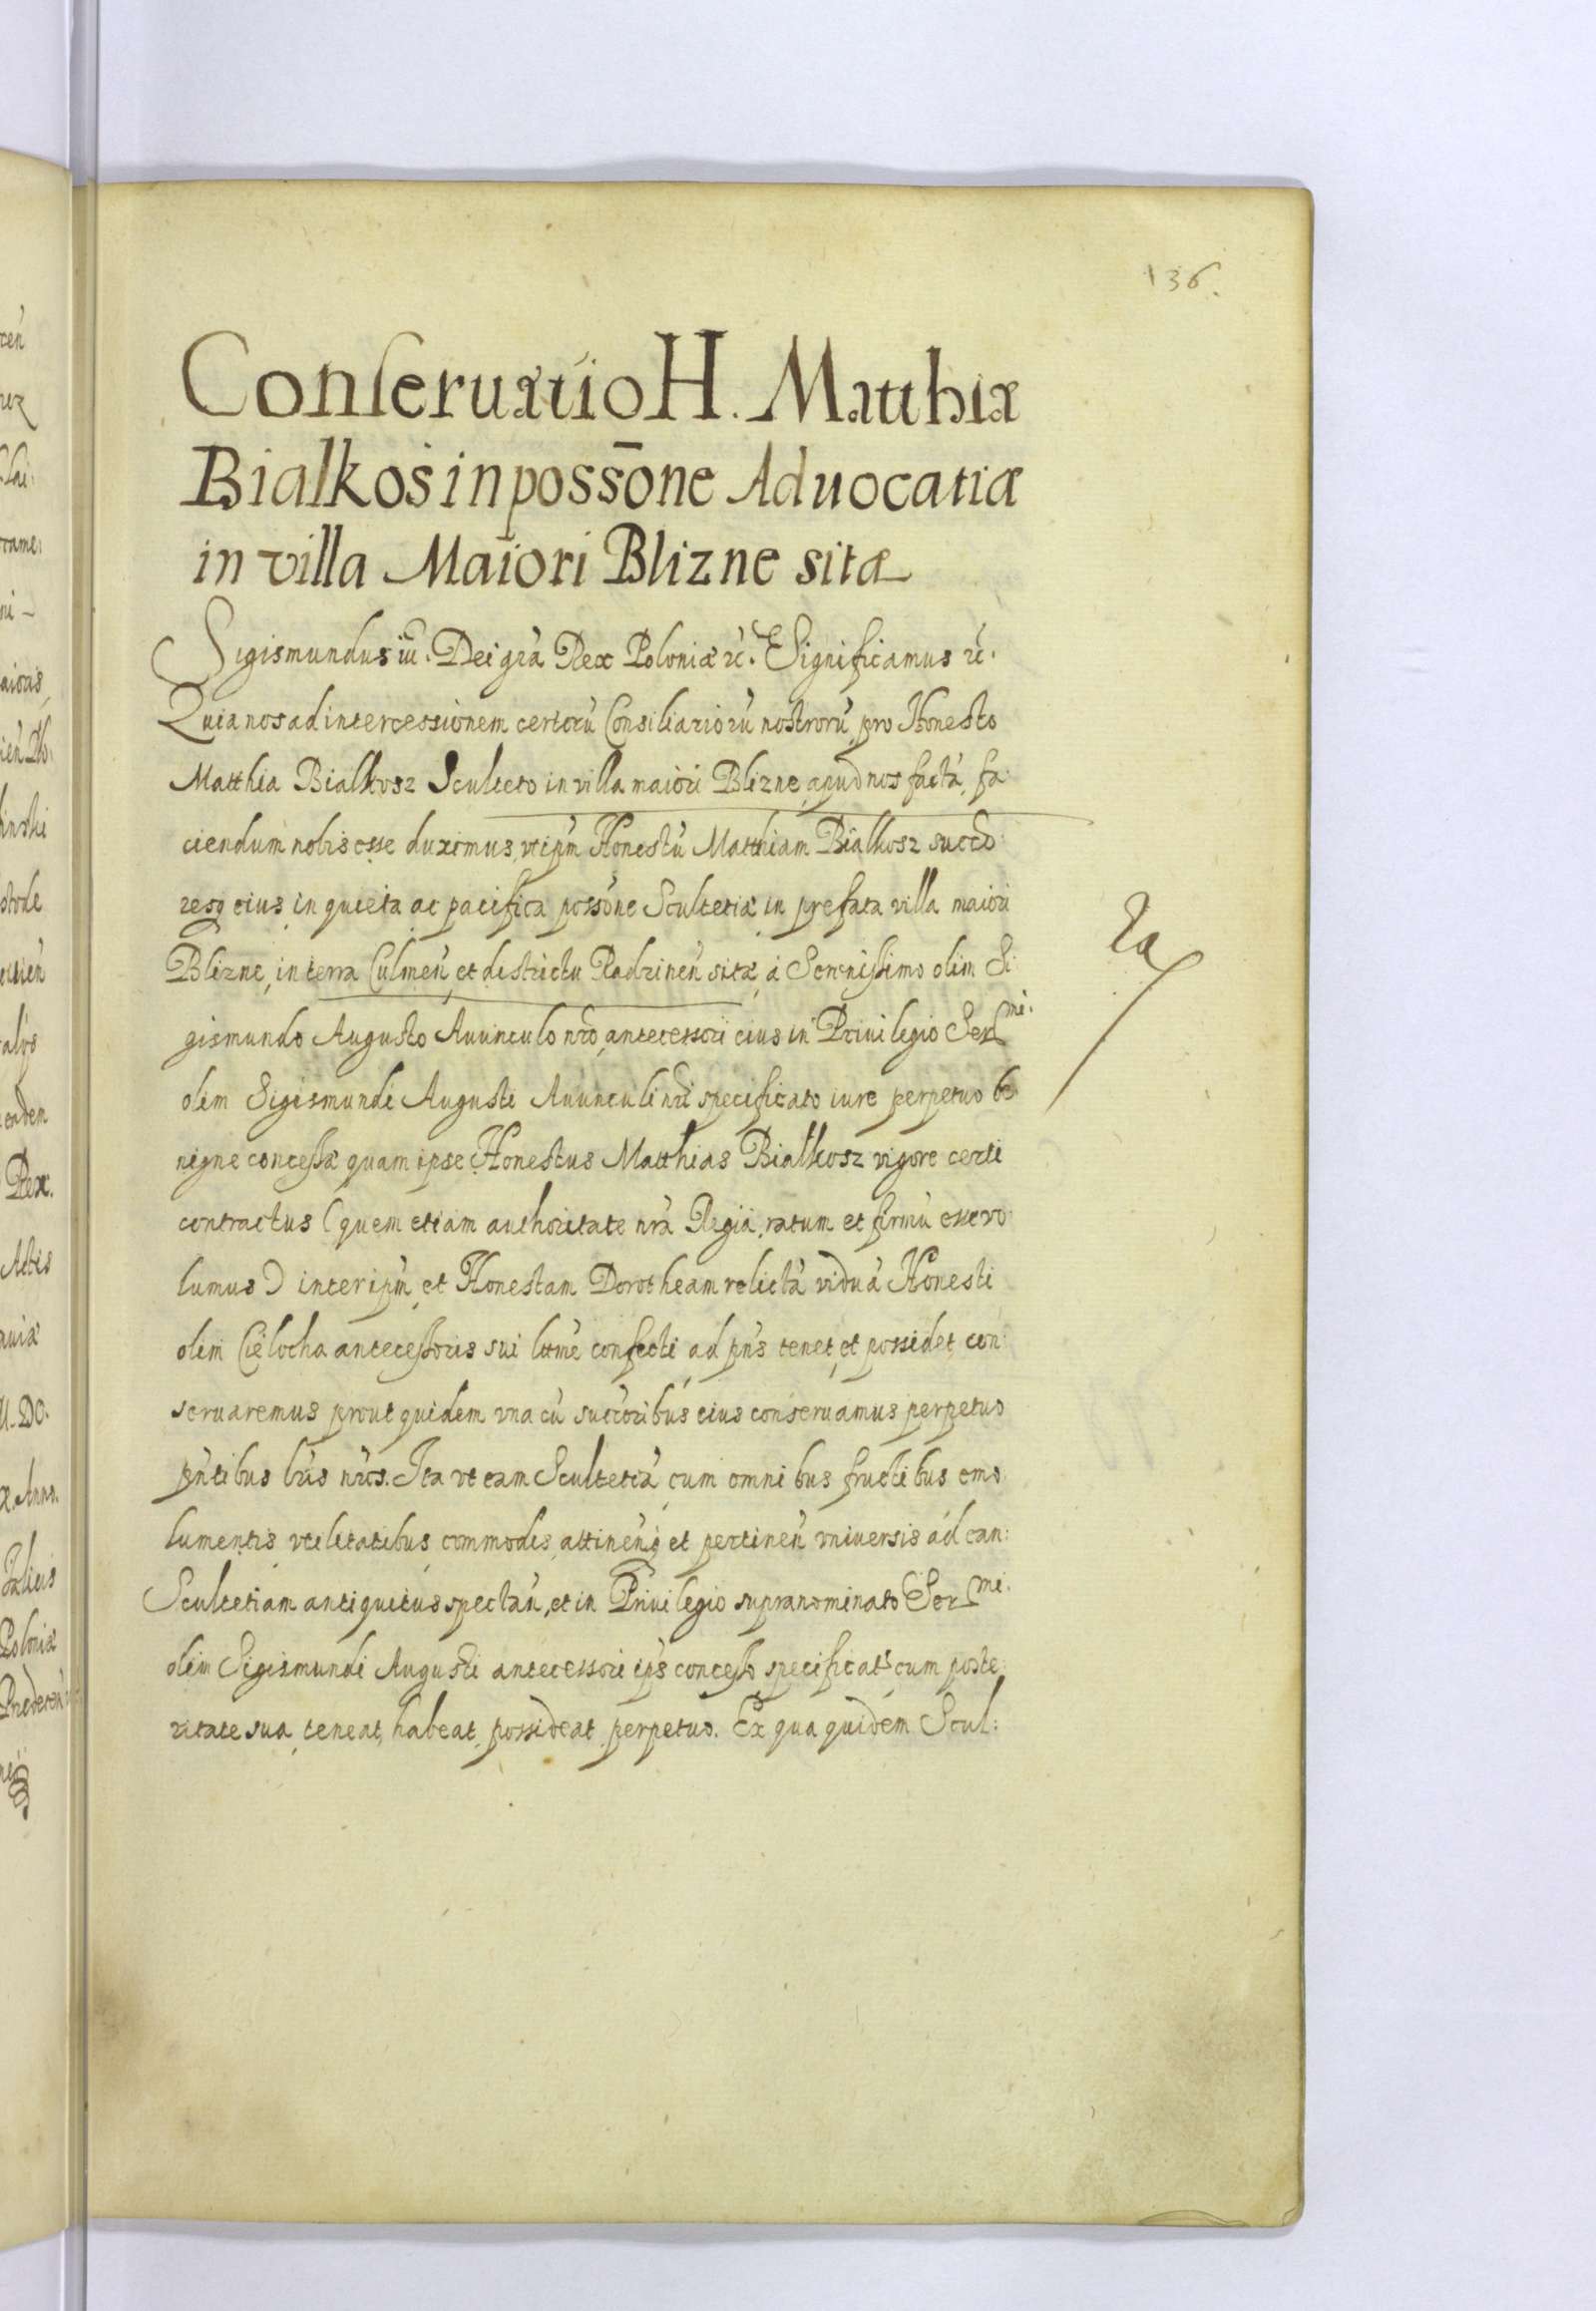 136.
Conseruatio H. Matthiæ
Bialkos in possōne Aduocatiæ
in villa Maiori Blizne sitæ
Sigismundus iii. Dei grā Rex Poloniæ &c. Significamus &c.
Quia nos ad intercessionem certorū Consiliariorū nostrorū pro Honesto
Matthia Bialkosz Sculteto in villa maiori Blizne, apud nos factā, fa:
ciendum nobis esse duximus, vt ipm̄ Honestū Matthiam Bialkosz succo:
resq eius in quieta ac pacifica possōne Scultetiæ in prefata villa maiori
Blizne, in terra Culmeñ et districtu Radzineñ sitæ, à Serenissimo olim Si:
gismundo Augusto Auunculo nr̄o, antecessori eius in Priuilegio Ser mi.
olim Sigismundi Augusti Auunculi nr̄i specificato iure perpetuo be:
nigne concessæ quam ipse Honestus Matthias Bialkosz vigore certi
contractus (quem etiam authoritate nr̄a Regia, ratum et firmū esse vo:
lumus) inter ipm̄ et Honestam Dorotheam relictā viduā Honesti
olim Cielocha antecessoris sui lttme confecti, ad pn̄s tenet, et possidet, con:
seruaremus prout quidem vna cū succoribus eius conseruamus perpetuo
pn̄tibus lrīs nr̄is. Ita vt eam Scultetiā cum omnibus fructibus emo:
lumentis, vtilitatibus, commodis, attineñq et pertineñ vniuersis ad ean:
Scultetiam antiquitus spectañ, et in Priuilegio supranominato Ser mi.
olim Sigismundi Augusti antecessori ips concesso specificatˢ, cum poste:
ritate sua, teneat, habeat, possideat perpetuo. Ex qua quidem Scul: